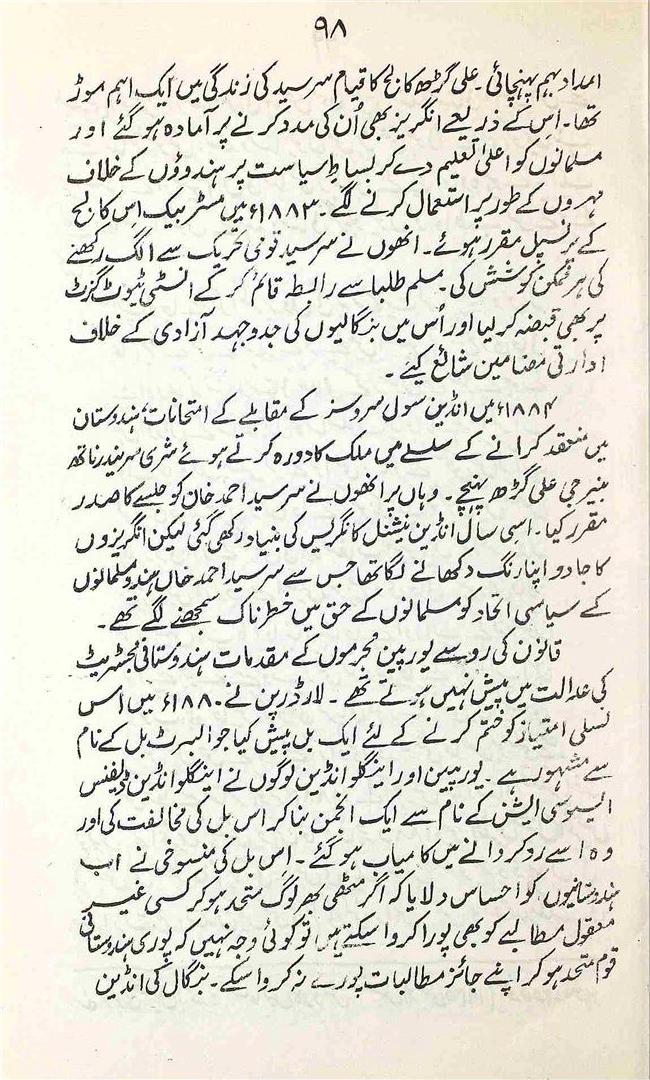 ۹۸
امداد بہم پہنچائی۔ علی گڑھ کالج کا قیام سرسید کی زندگی میں ایک اہم موڑ
تھا۔ اِس کے ذریعے انگریز بھی اُن کی مدد کرنے پر آمادہ ہو گئے اور
مسلمانوں کو اعلیٰ تعلیم دے کر بساطِ سیاست پر ہندوؤں کے خلاف
مہروں کے طور پر استعمال کرنے لگے۔ ۱۸۸۳ء میں مسٹر بیک اِس کالج
کے پرنسپل مقرر ہوئے۔ انھوں نے سرسید قومی تحریک سے الگ رکھنے
کی ہر ممکن کوشش کی۔ مسلم طلبا سے رابطہ قائم کر کے انسٹی ٹیوٹ گزٹ
پر بھی قبضہ کر لیا اور اُس میں بنگالیوں کی جدوجہد آزادی کے خلاف
ادارتی مضامین شائع کیے۔
۱۸۸۴ء میں انڈین سول سروسز کے مقابلے کے امتحانات، ہندوستان
میں منعقد کرانے کے سلسلے میں ملک کا دورہ کرتے ہوئے شری سریندر ناتھ
بنیرجی علی گڑھ پہنچے۔ وہاں پر انھوں نے سرسید احمد خان کو جلسے کا صدر
مقرر کیا۔ اسی سال انڈین نیشنل کانگریس کی بنیاد رکھی گئی لیکن انگریزوں
کا جادو اپنا رنگ دکھانے لگا تھا جس سے سرسید احمد خاں ہندو مسلمانوں
کے سیاسی اتحاد کو مسلمانوں کے حق میں خطرناک سمجھنے لگے تھے۔
قانون کی رو سے یورپین مجرموں کے مقدمات ہندوستانی مجسٹریٹ
کی عدالت میں پیش نہیں ہوتے تھے۔ لارڈ رپن نے ۱۸۸۰ء میں اس
نسلی امتیاز کو ختم کرنے کے لئے ایک بل پیش کیا جو البرٹ بل کے نام
سے مشہور ہے۔ یورپین اور اینگلو انڈین لوگوں نے اینگلو انڈین ڈیفنس
ایسوسی ایشن کے نام سے ایک انجمن بنا کر اس بل کی مخالفت کی اور
وہ اسے رد کروانے میں کامیاب ہو گئے۔ اِس بل کی منسوخی نے اب
ہندوستانیوں کو احساس دلایا کہ اگر مٹھی بھر لوگ متحد ہو کر کسی غیر
معقول مطالبے کو بھی پورا کروا سکتے ہیں تو کوئی وجہ نہیں کہ پوری ہندوستانی
قوم متحد ہو کر اپنے جائز مطالبات پورے نہ کروا سکے۔ بنگال کی انڈین